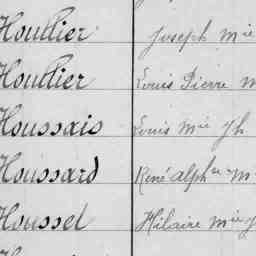 Houllier Joseph Mie
Houllier Louis Pierre M
Houssais Louis Mie Jh
Houssard René Alphse M
Houssel Hilaire Mie J